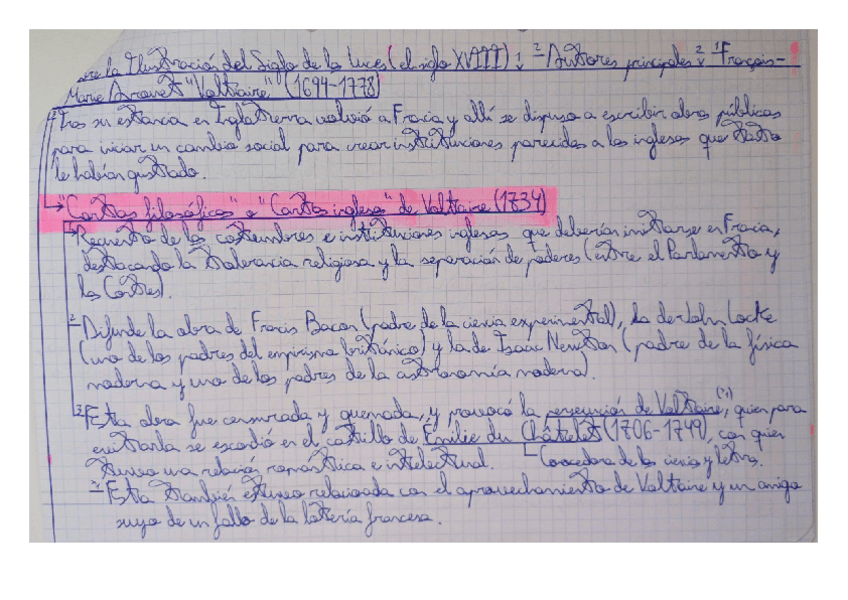 la Ilustración del Siglo de las Luces (el siglo XVIII): 2-Autores principales: 1-François-
Marie Arouet "Voltaire" (1694-1778)
1-Tras su estancia en Inglaterra volvió a Francia y allí se dispuso a escribir obras públicas
para iniciar un cambio social para crear instituciones parecidas a las inglesas que tanto
le habían gustado.
→"Cartas filosóficas" o "Cartas inglesas" de Voltaire (1734)
1-Recuento de las costumbres e instituciones inglesas que deberían imitarse en Francia,
destacando la tolerancia religiosa y la separación de poderes (entre el Parlamento y
las Cortes).
2-Difunde la obra de Francis Bacon (padre de la ciencia experimental), la de John Locke
(uno de los padres del empirismo británico) y la de Isaac Newton (padre de la física
moderna y uno de los padres de la astronomía moderna).
3-Esta obra fue censurada y quemada, y provocó la persecución de Voltaire, quien para
evitarla se escondió en el castillo de Émilie du Châtelet (1706-1749), con quien
tuvo una relación romántica e intelectual. Conocedora de la ciencia y letras.
Esta también estuvo relacionada con el aprovechamiento de Voltaire y un amigo
suyo de un fallo de la lotería francesa.